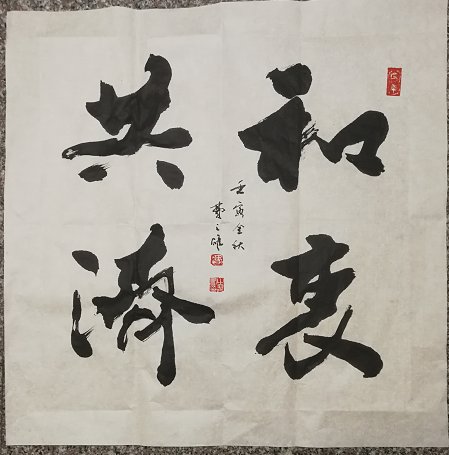 和衷
共濟
壬寅金秋
費之雄